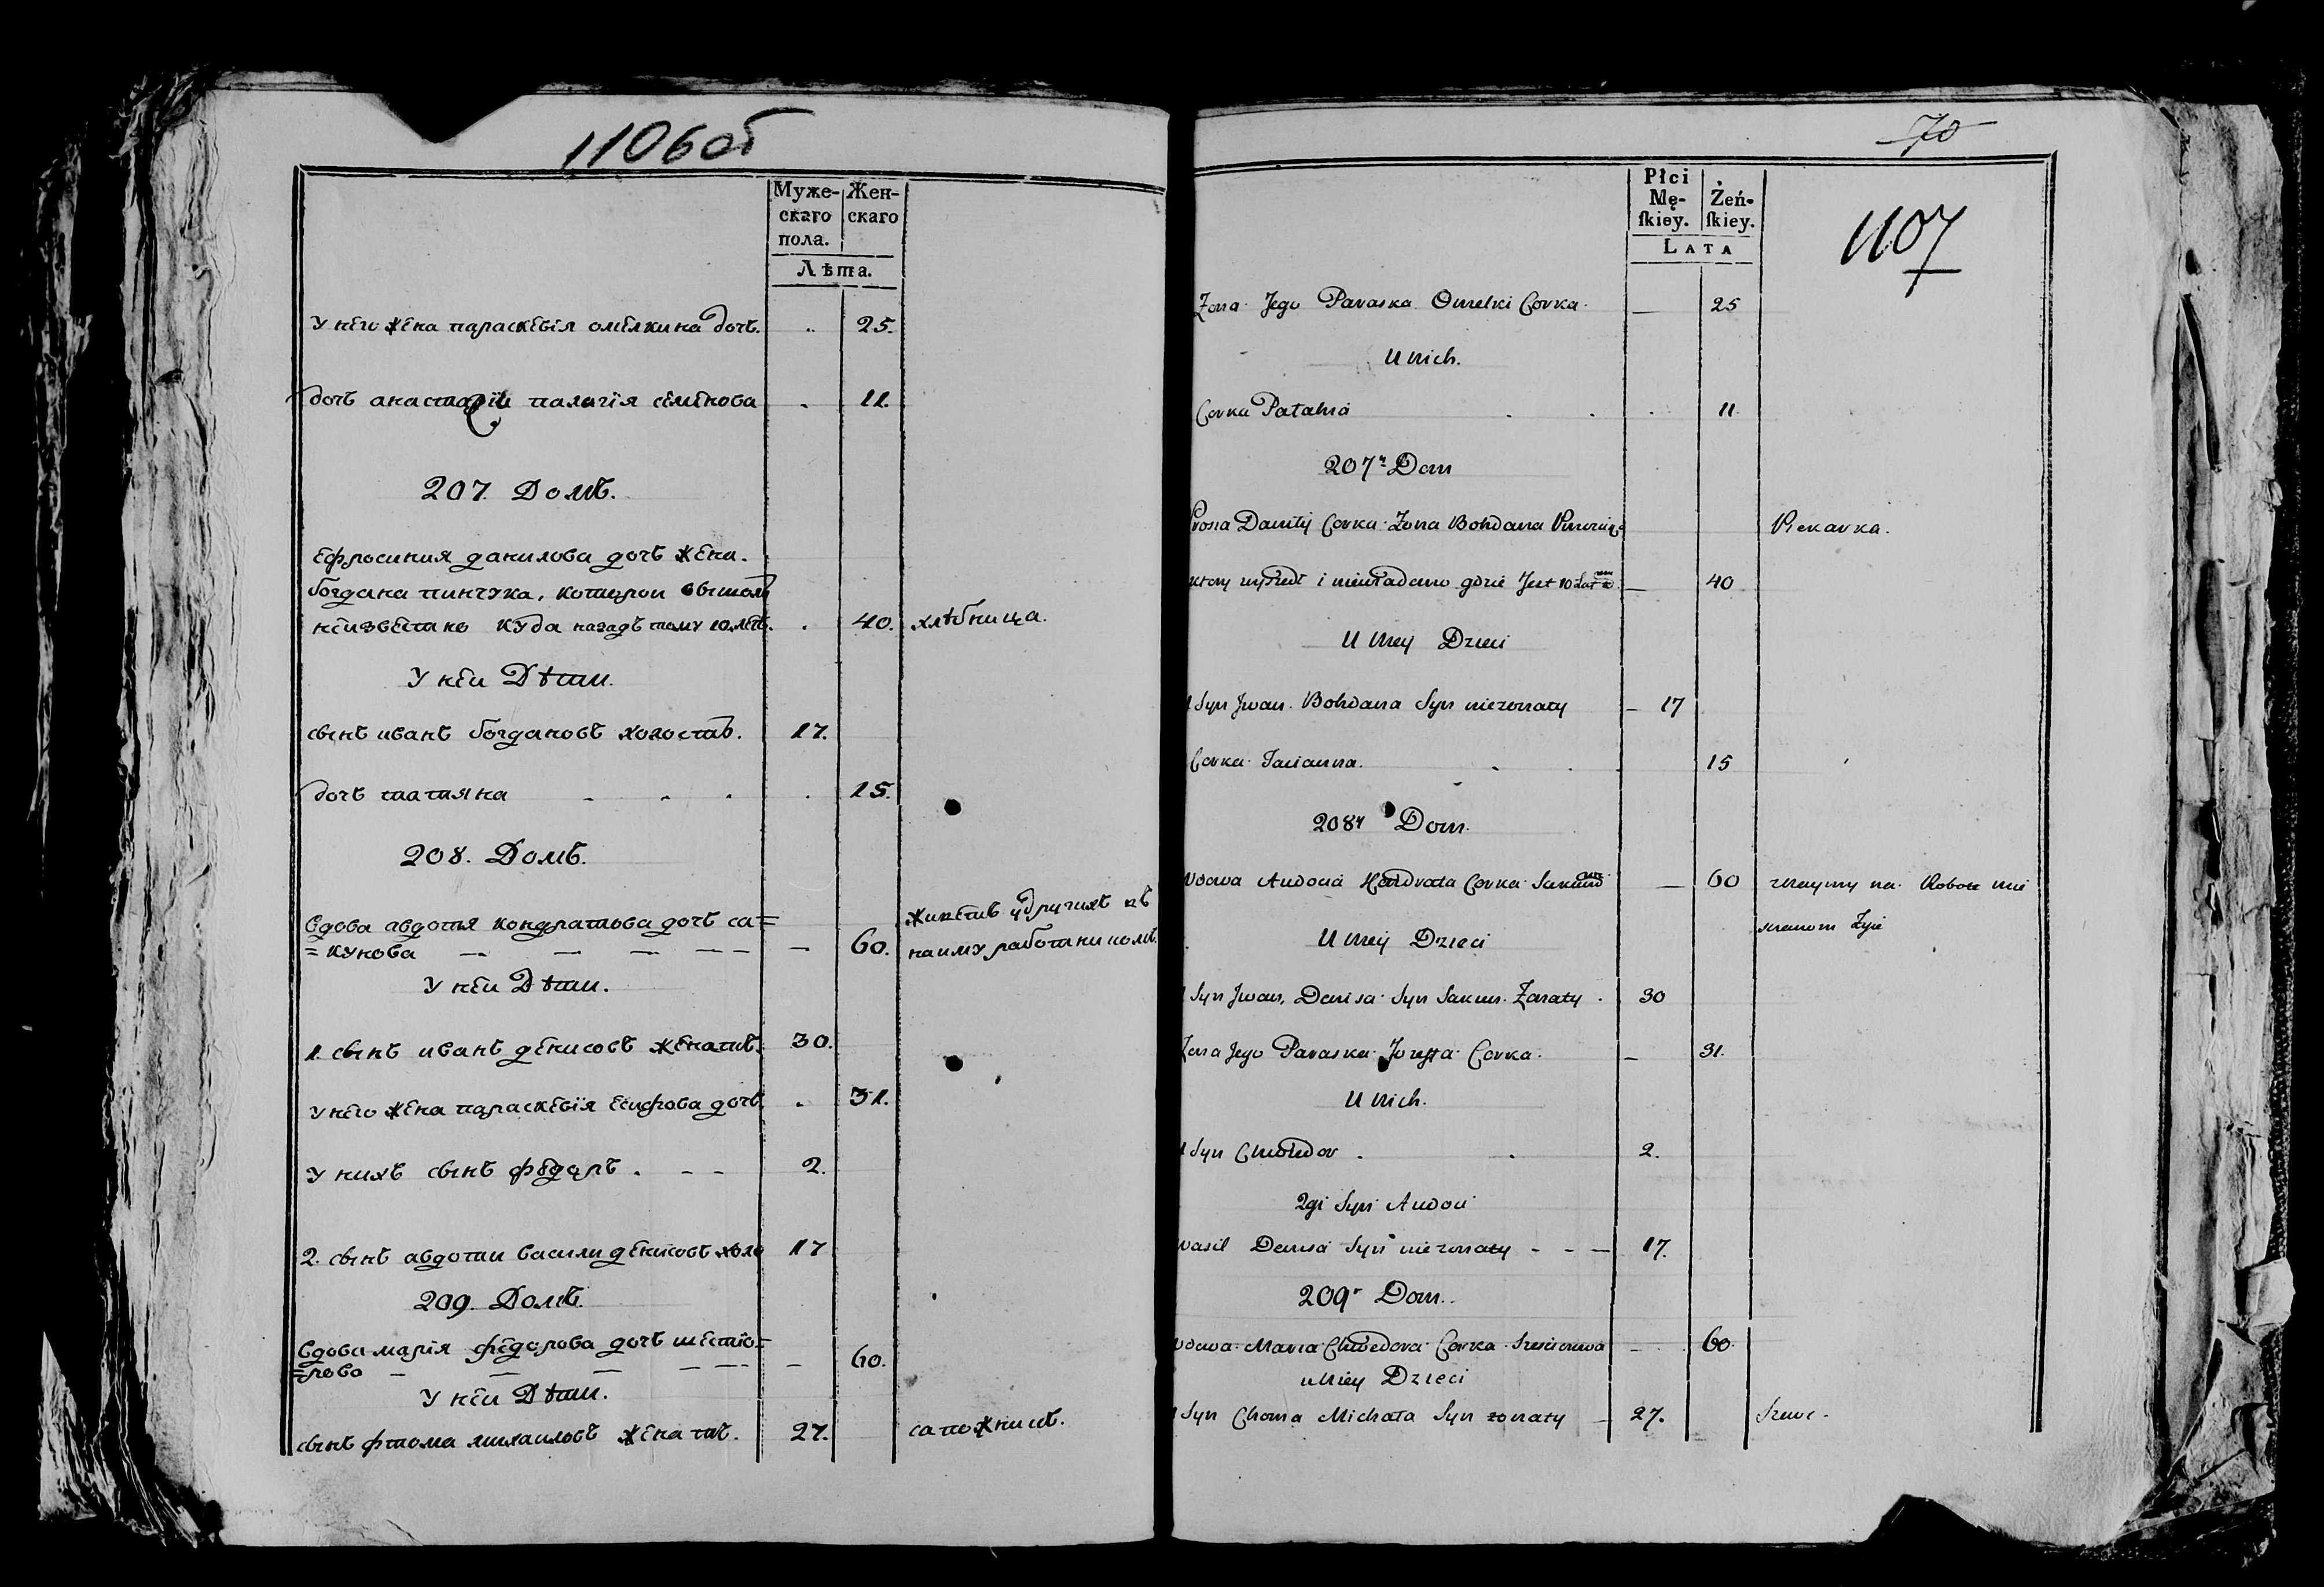 1106об
Муже-
скаго
пола.
Жен-
скаго
Лѣта.
У него жена параскевія омелкина дочь. 25.
дочь палагія семенова 11.
207 Домъ.
Ефросиния данилова дочь жена
богдана пинчука, которои вышолъ
неизвестно куда назадъ тому 10 летъ. 40. хлѣбница.
У неи Дѣти.
сынъ иванъ богдановъ холостъ. 17.
дочь татияна 15.
208. Домъ.
вдова авдотья кондратова дочь са=
=кунова — — — — — 60.
живетъ у другихъ
наиму работни
У неи Дѣти.
1. сынъ иванъ денисовъ женатъ. 30.
У него жена параскевія есифова дочь. 31.
У нихъ сынъ фёдаръ. - - 2.
2. сынъ авдотии васили денисовъ холо 17
209. Домъ.
вдова марія федорова дочь шестіо=
=рова — — — — — 60.
У неи Дѣти.
сынъ фтома михаиловъ женатъ. 27. сапожникъ.
70
1107
Płci
Mę-
ſkiey.
Żeń-
ſkiey.
LATA
Zona Jego Paraska Omelki Corka. — 25
U nich.
Corka Pałahia 11.
207ʸ Dom
Prosia Daniły Corka Zona Bohdana Piekarka.
ktory wyszedł i niewiadomo gdzie Jest 10 Lat — 40
U Niey Dzieci
1 Syn Jwan Bohdana Syn niezonaty — 17
Corka Tacianna. 15
208ʸ Dom.
Wdowa Audocia Kondrata Corka — 60 na Robote
Zyie
U Niey Dzieci
1 Syn Jwan, Denisa Syn Zonaty 30
Zona Jego Paraska Jozeffa Corka. — 31.
U Nich.
1 Syn Chwedor 2.
2gi Syn Audoci
Wasil Denisa Syn niezonaty - - — 17.
209ʸ Dom.
Wdowa Maria Chwedora Corka — 60.
u Niey Dzieci
1 Syn Choma Michała Syn zonaty — 27. Szewc.